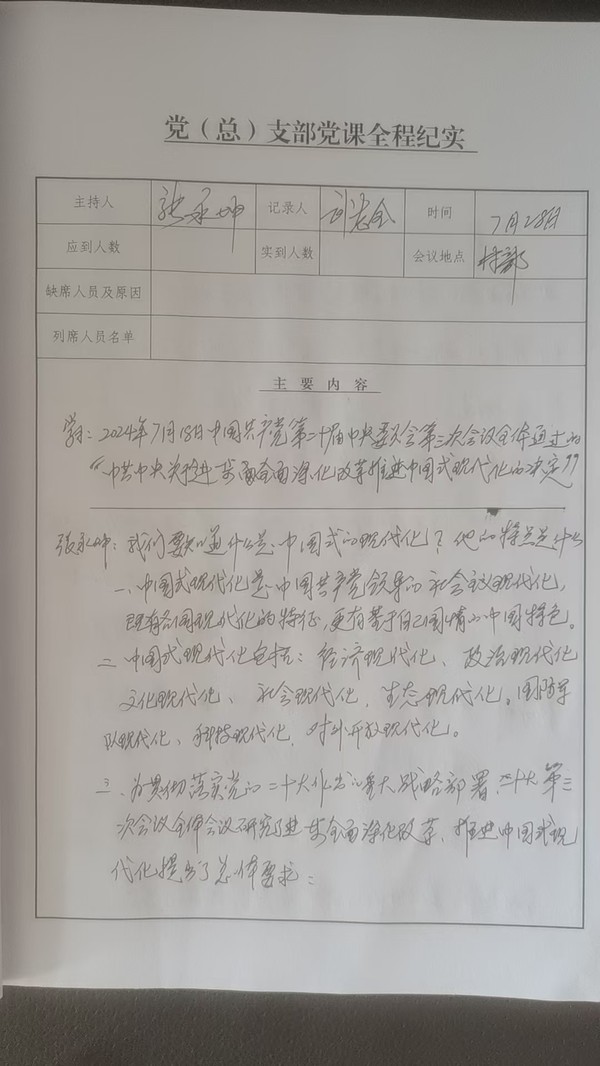 党（总）支部党课全程纪实
主持人 张永坤 记录人 时间 7月28日
应到人数 实到人数 会议地点 村部
缺席人员及原因
列席人员名单
主要内容
学习：2024年7月18日中国共产党第二十届中央委员会第三次会议全体通过的
《中共中央关于进一步全面深化改革推进中国式现代化的决定》
张永坤：我们要知道什么是中国式的现代化？他的特点是什么
一、中国式现代化是中国共产党领导的社会主义现代化，
既有各国现代化的特征，更有基于自己国情的中国特色。
二、中国式现代化包括：经济现代化、政治现代化
文化现代化、社会现代化、生态现代化。国防军
队现代化、科技现代化、对外开放现代化。
三、为贯彻落实党的二十大作出的重大战略部署，二十大第三
次会议全体会议研究了进一步全面深化改革、推进中国式现
代化提出了总体要求：